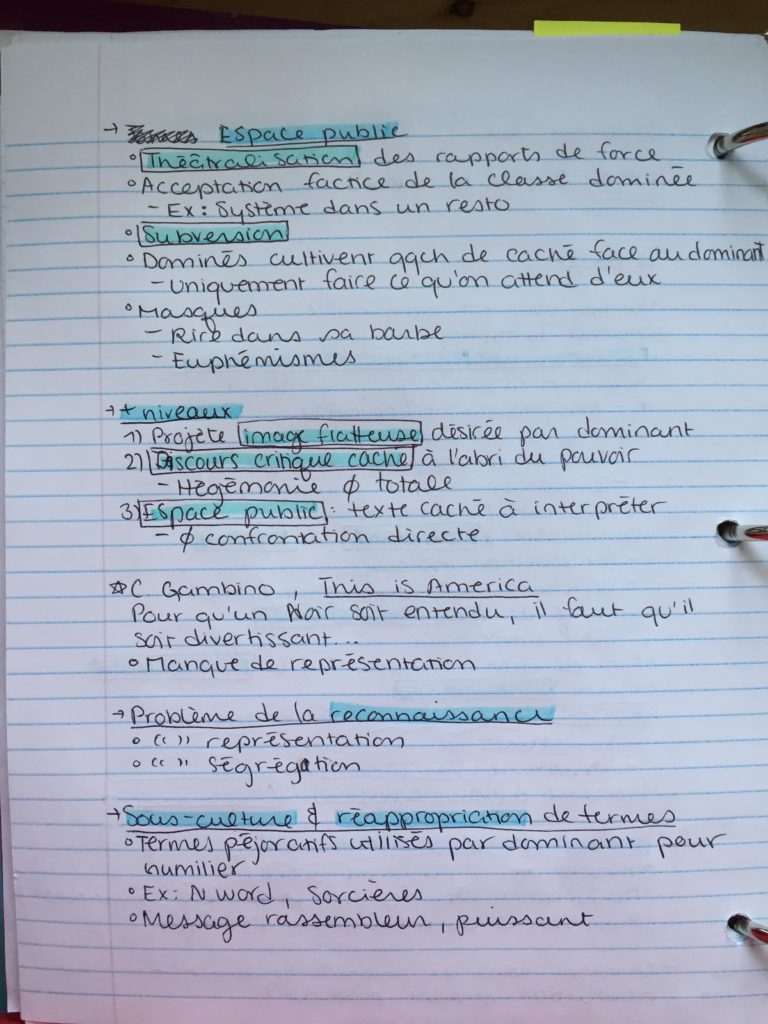 → Espace public
° Théâtralisation des rapports de force
° Acceptation factice de la classe dominée
- Ex : Système dans un resto
° Subversion
° Dominés cultivent qqch de caché face au dominant
- Uniquement faire ce qu'on attend d'eux
° Masques
- Rire dans sa barbe
- Euphémismes
→ + niveaux
1) Projète image flatteuse désirée par dominant
2) Discours critique caché à l'abri du pouvoir
- Hégémonie ∅ totale
3) Espace public : texte caché à interpréter
- ∅ confrontation directe
☆ C. Gambino, This is America
Pour qu'un Noir soit entendu, il faut qu'il
soit divertissant...
° Manque de représentation
→ Problème de la reconnaissance
° " " représentation
° " " ségrégation
→ Sous-culture & réappropriation de termes
° Termes péjoratifs utilisés par dominant pour
humilier
° Ex : N word, Sorcières
° Message rassembleur, puissant